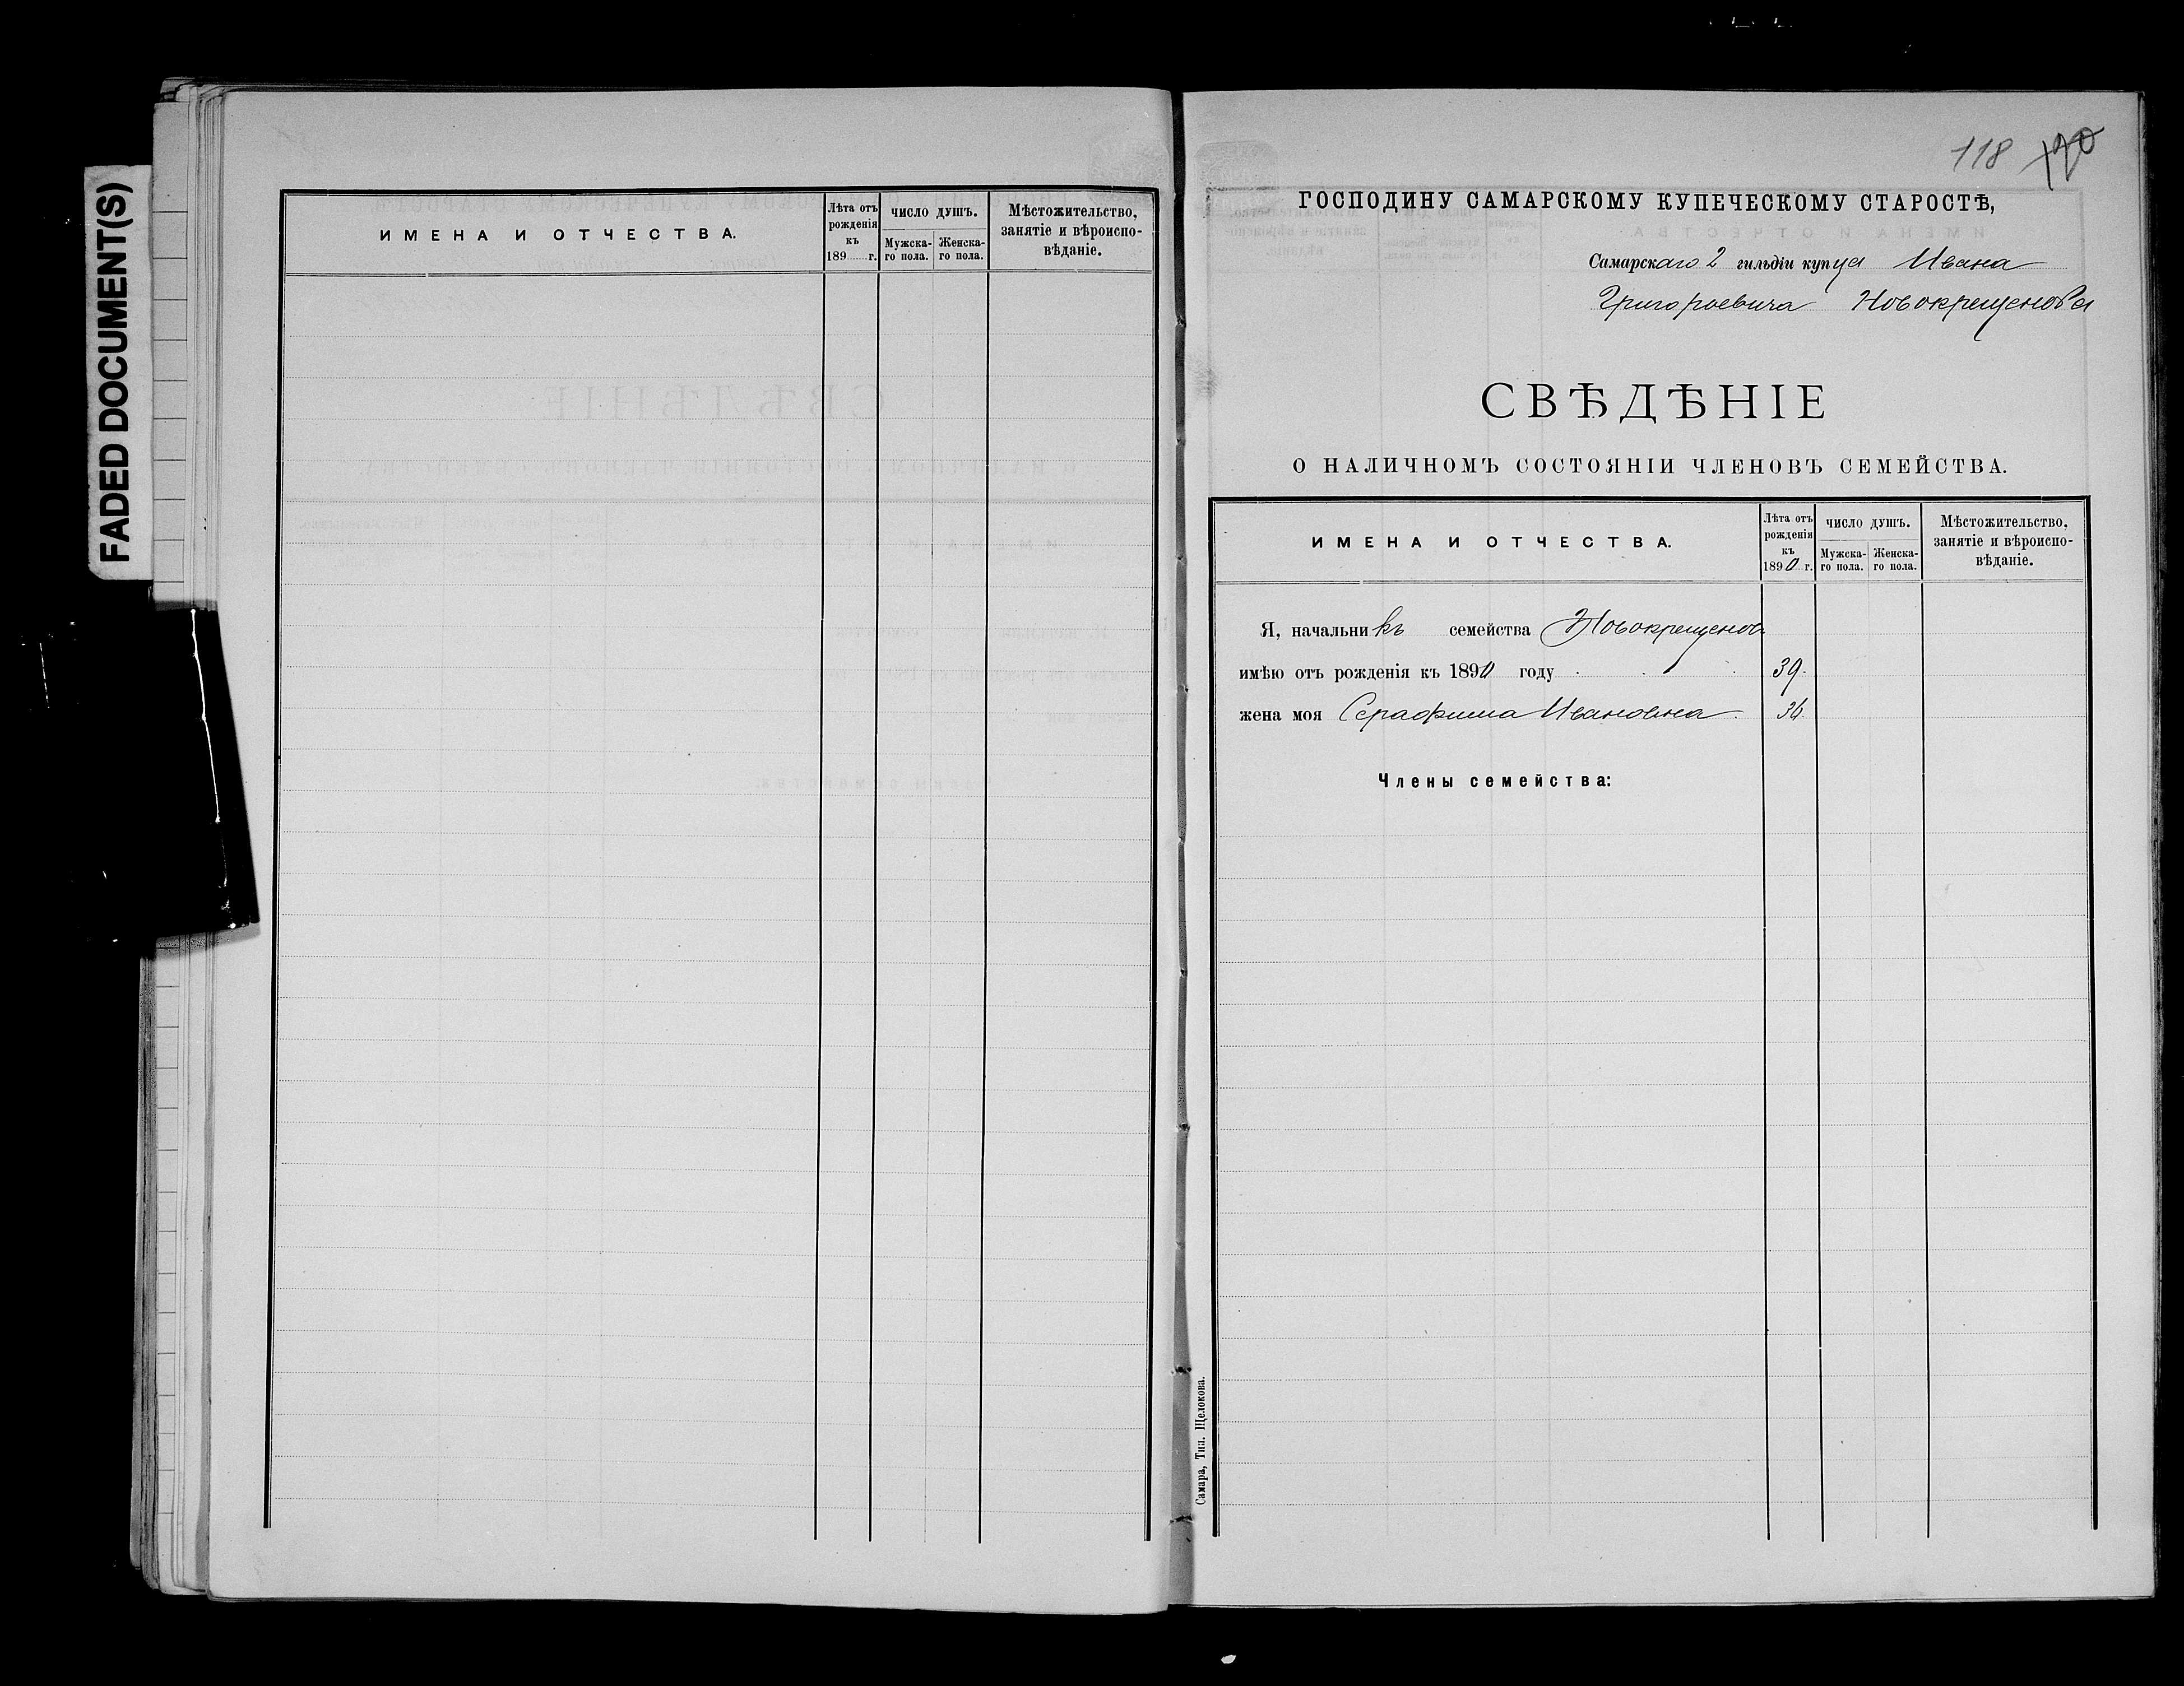 FADED DOCUMENT(S)
ИМЕНА И ОТЧЕСТВА.
Лѣта отъ рожденія къ 189 г.
ЧИСЛО ДУШЪ.
Мужска-го пола.
Женска-го пола.
Мѣстожительство, занятіе и вѣроиспо-вѣданіе.
118
ГОСПОДИНУ САМАРСКОМУ КУПЕЧЕСКОМУ СТАРОСТѢ,
Самарскаго 2 гильдіи купца Ивана
Григорьевича Новокрещенова
СВѢДѢНІЕ
О НАЛИЧНОМЪ СОСТОЯНІИ ЧЛЕНОВЪ СЕМЕЙСТВА.
ИМЕНА И ОТЧЕСТВА.
Лѣта отъ рожденія къ 1890 г.
ЧИСЛО ДУШЪ.
Мужска-го пола.
Женска-го пола.
Мѣстожительство, занятіе и вѣроиспо-вѣданіе.
Я, начальникъ семейства Новокрещеновъ
имѣю отъ рожденія къ 1890 году 39.
жена моя Серафима Ивановна 36
Члены семейства:
Самара, Тип. Щелокова.